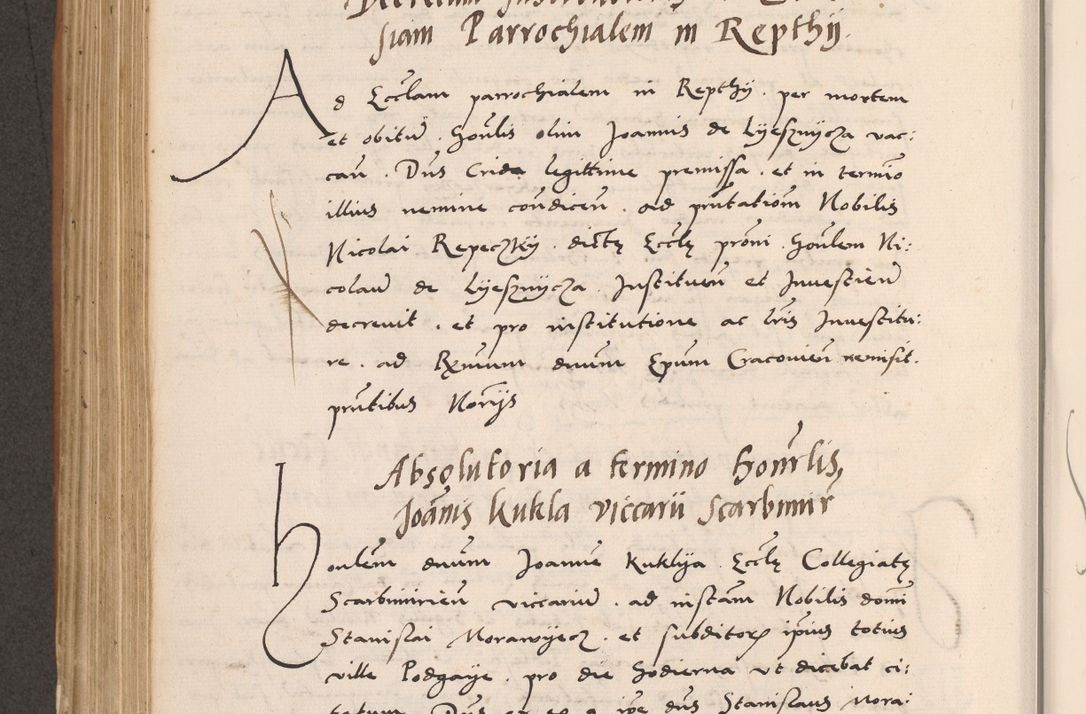 siam Parrochialem in Repthÿ.
Ad Eccl̃am parrochialem in Repthÿ. per mortem
et obitũ. Hon̄lis olim Joannis de Lÿesznÿcza vac:
cañ. Dn̄s Crida legittime premissa. et in termiõ
illius nemine cõndiceñ. ad pn̄tatiõm Nobilis
Nicolai Repeczkÿ. dictę Eccl̃ę prõni. Hon̄lem Ni:
colaũ de Lÿesznÿcza. Instituen̄ et Inuestien̄
decreuit. et pro institutione ac lr̃is Inuestitu:
re. ad Rx̃mum dnũm Epũm Cracouieñ remisit.
pn̄tibus Nor̃ijs
Absolutoria a termino Honr̃lis,
Joãnis Kukla viccarii Scarbimir̃
Honlem̄ dnũm Joannẽ Kuklÿa. Eccl̃ę Collegiatę
Scarbimirieñ viccariũ. ad instam̄ Nobilis domĩ
Stanislai Morawÿecz. et subditorꝝ ip̃ius totius
ville Podgaÿe. pro die hodierna vt dicebat ci:
tatum Dn̄s ex eo q ip̃e dn̄s Stanislaus Mora: